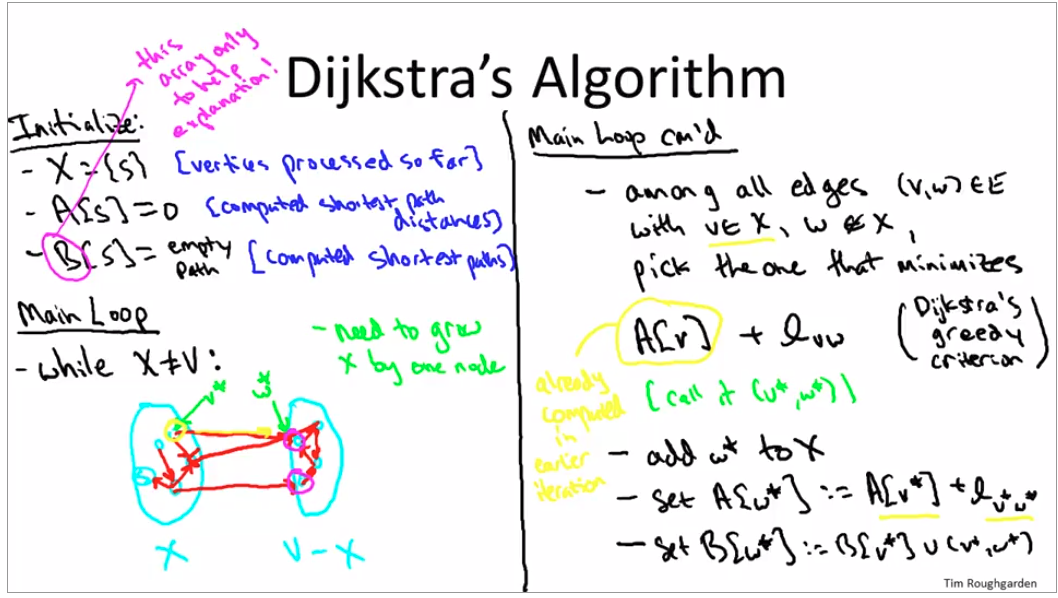 Dijkstra's Algorithm
this
array only
to help
explanation!
Initialize:
- X = {s} [vertices processed so far]
- A[s] = 0 [computed shortest path
distances]
- B[s] = empty
path [computed shortest paths]
Main Loop
- while X ≠ V:
- need to grow
X by one node
v*
w*
s
X
V - X
Main Loop cnt'd
- among all edges (v,w) ∈ E
with v ∈ X, w ∉ X,
pick the one that minimizes
A[v] + l_vw
(Dijkstra's
greedy
criterion)
already
computed
in
earlier
iteration
[call it (v*, w*)]
- add w* to X
- set A[w*] := A[v*] + l_v*w*
- set B[w*] := B[v*] ∪ (v*, w*)
Tim Roughgarden